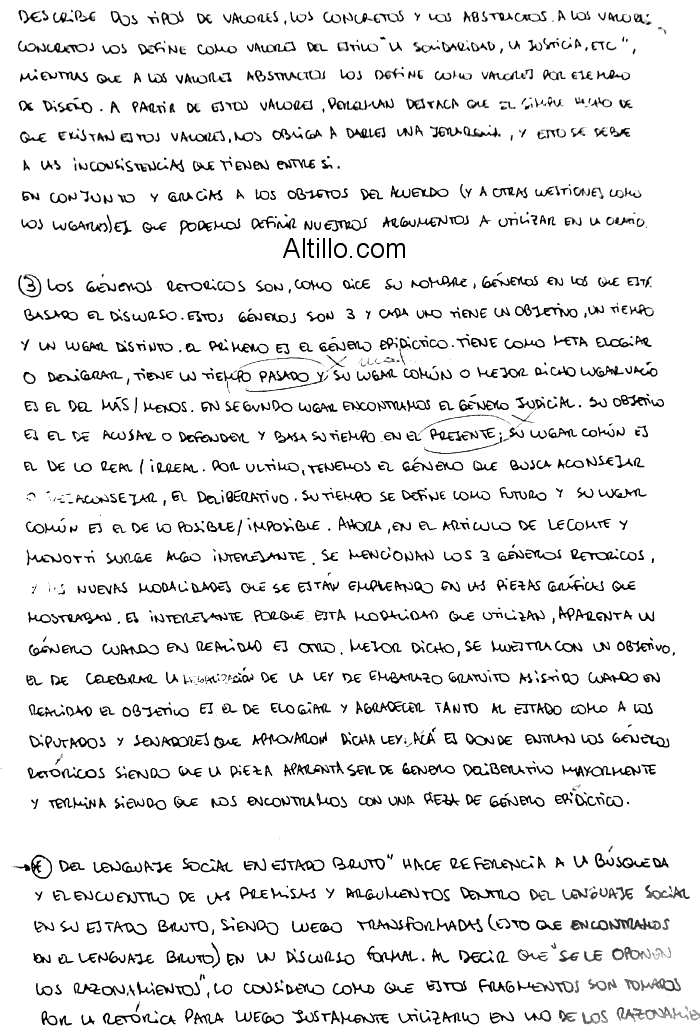 DESCRIBE DOS TIPOS DE VALORES, LOS CONCRETOS Y LOS ABSTRACTOS. A LOS VALORES
CONCRETOS LOS DEFINE COMO VALORES DEL ESTILO "LA SOLIDARIDAD, LA JUSTICIA, ETC",
MIENTRAS QUE A LOS VALORES ABSTRACTOS LOS DEFINE COMO VALORES POR EJEMPLO
DE DISEÑO. A PARTIR DE ESTOS VALORES, PERELMAN DESTACA QUE EL SIMPLE HECHO DE
QUE EXISTAN ESTOS VALORES, NOS OBLIGA A DARLES UNA JERARQUIA, Y ESTO SE DEBE
A LAS INCONSISTENCIAS QUE TIENEN ENTRE SI.
EN CONJUNTO Y GRACIAS A LOS OBJETOS DEL ACUERDO (Y A OTRAS CUESTIONES COMO
LOS LUGARES) ES QUE PODEMOS DEFINIR NUESTROS ARGUMENTOS A UTILIZAR EN LA ORATIO.
Altillo.com
③ LOS GÉNEROS RETORICOS SON, COMO DICE SU NOMBRE, GÉNEROS EN LOS QUE ESTÁ
BASADO EL DISCURSO. ESTOS GÉNEROS SON 3 Y CADA UNO TIENE UN OBJETIVO, UN TIEMPO
Y UN LUGAR DISTINTO. EL PRIMERO ES EL GÉNERO EPIDICTICO. TIENE COMO META ELOGIAR
O DENIGRAR, TIENE UN TIEMPO PASADO Y SU LUGAR COMÚN O MEJOR DICHO LUGAR VACIO
ES EL DEL MÁS/MENOS. EN SEGUNDO LUGAR ENCONTRAMOS EL GÉNERO JUDICIAL. SU OBJETIVO
ES EL DE ACUSAR O DEFENDER Y BASA SU TIEMPO EN EL PRESENTE; SU LUGAR COMÚN ES
EL DE LO REAL/IRREAL. POR ULTIMO, TENEMOS EL GÉNERO QUE BUSCA ACONSEJAR
O DESACONSEJAR, EL DELIBERATIVO. SU TIEMPO SE DEFINE COMO FUTURO Y SU LUGAR
COMÚN ES EL DE LO POSIBLE/IMPOSIBLE. AHORA, EN EL ARTICULO DE LECOMTE Y
MENOTTI SURGE ALGO INTERESANTE. SE MENCIONAN LOS 3 GÉNEROS RETORICOS,
Y LAS NUEVAS MODALIDADES QUE SE ESTÁN EMPLEANDO EN LAS PIEZAS GRÁFICAS QUE
MOSTRABAN. ES INTERESANTE PORQUE ESTA MODALIDAD QUE UTILIZAN, APARENTA UN
GÉNERO CUANDO EN REALIDAD ES OTRO. MEJOR DICHO, SE MUESTRA CON UN OBJETIVO,
EL DE CELEBRAR LA LEGALIZACIÓN DE LA LEY DE EMBARAZO GRATUITO ASISTIDO CUANDO EN
REALIDAD EL OBJETIVO ES EL DE ELOGIAR Y AGRADECER TANTO AL ESTADO COMO A LOS
DIPUTADOS Y SENADORES QUE APROVARON DICHA LEY. ACÁ ES DONDE ENTRAN LOS GÉNEROS
RETÓRICOS SIENDO QUE LA PIEZA APARENTA SER DE GENERO DELIBERATIVO MAYORMENTE
Y TERMINA SIENDO QUE NOS ENCONTRAMOS CON UNA PIEZA DE GÉNERO EPIDÍCTICO.
DEL LENGUAJE SOCIAL EN ESTADO BRUTO" HACE REFERENCIA A LA BÚSQUEDA
Y EL ENCUENTRO DE LAS PREMISAS Y ARGUMENTOS DENTRO DEL LENGUAJE SOCIAL
EN SU ESTADO BRUTO, SIENDO LUEGO TRANSFORMADAS (ESTO QUE ENCONTRAMOS
EN EL LENGUAJE BRUTO) EN UN DISCURSO FORMAL. AL DECIR QUE "SE LE OPONEN
LOS RAZONAMIENTOS", LO CONSIDERO COMO QUE ESTOS FRAGMENTOS SON TOMADOS
POR LA RETÓRICA PARA LUEGO JUSTAMENTE UTILIZARLO EN UNO DE LOS